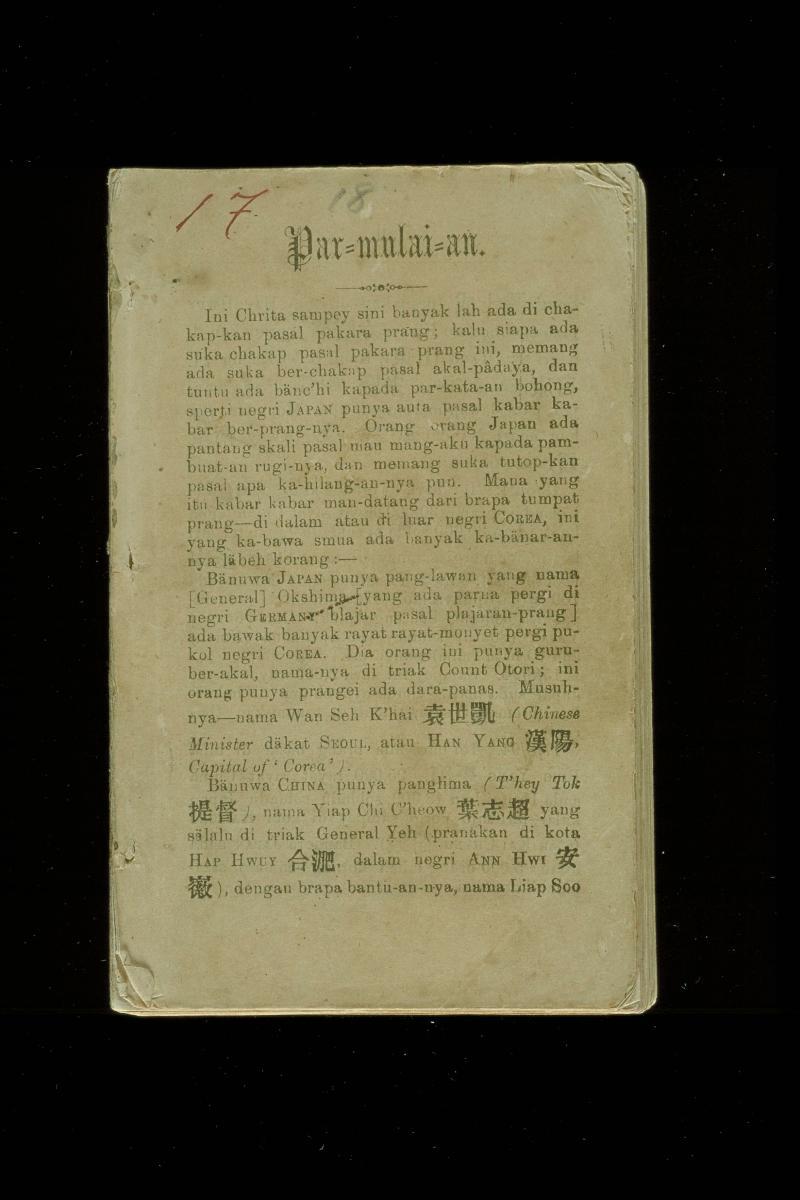 17 18
Par-mulai-an.
Ini Chrita sampey sini banyak lah ada di cha-
kap-kan pasal pakara prang; kalu siapa ada
suka chakap pasal pakara prang ini, memang
ada suka ber-chakap pasal akal-pâdaya, dan
tuntu ada bänc'hi kapada par-kata-an bohong,
sperti negri JAPAN punya auta pasal kabar ka-
bar ber-prang-nya. Orang orang Japan ada
pantang skali pasal mau mang-aku kapada pam-
buat-an rugi-nya, dan memang suka tutop-kan
pasal apa ka-hilang-an-nya pun. Mana yang
itu kabar kabar man-datang dari brapa tumpat
prang—di dalam atau di luar negri COREA, ini
yang ka-bawa smua ada banyak ka-bänar-an-
nya läbeh korang:—
Bänuwa JAPAN punya pang-lawan yang nama
[General] Okshima [yang ada parna pergi di
negri GERMANY blajar pasal plajaran-prang]
ada bawak banyak rayat rayat-monyet pergi pu-
kol negri COREA. Dia orang ini punya guru-
ber-akal, nama-nya di triak Count Otori; ini
orang punya prangei ada dara-panas. Musuh-
nya—nama Wan Seh K'hai 袁世凱 (Chinese
Minister däkat SEOUL, atau HAN YANG 漢陽,
Capital of 'Corea').
Bänuwa CHINA punya panglima (T'hey Tok
提督), nama Yiap Chi C'heow 葉志超 yang
sälalu di triak General Yeh (pranakan di kota
HAP HWUY 合淝, dalam negri ANN HWI 安
徽), dengan brapa bantu-an-nya, nama Liap Soo